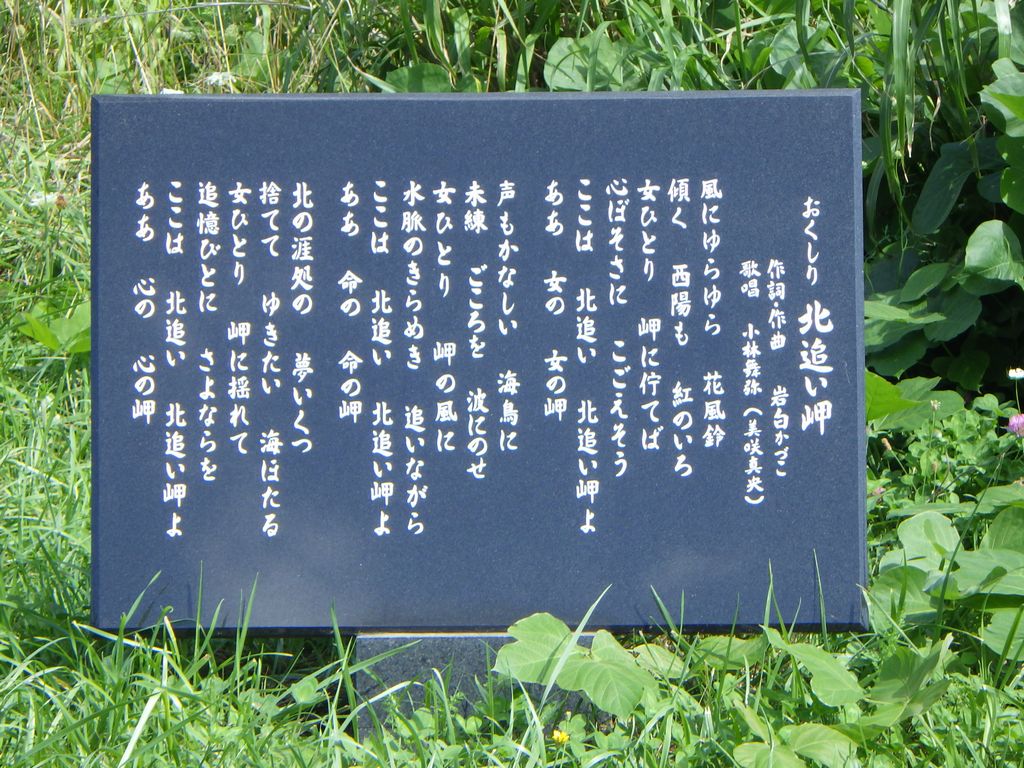 おくしり 北追い岬
作詞・作曲 岩白かづこ
歌唱 小林舞弥（美咲真央）
風にゆらゆら 花風鈴
傾く 西陽も 紅のいろ
女ひとり 岬に佇てば
心ぼそさに こごえそう
ここは 北追い 北追い岬よ
ああ 女の 女の岬
声もかなしい 海鳥に
未練 ごころを 波にのせ
女ひとり 岬の風に
水脈のきらめき 追いながら
ここは 北追い 北追い岬よ
ああ 命の 命の岬
北の涯処の 夢いくつ
捨てて ゆきたい 海ほたる
女ひとり 岬に揺れて
追憶びとに さよならを
ここは 北追い 北追い岬よ
ああ 心の 心の岬